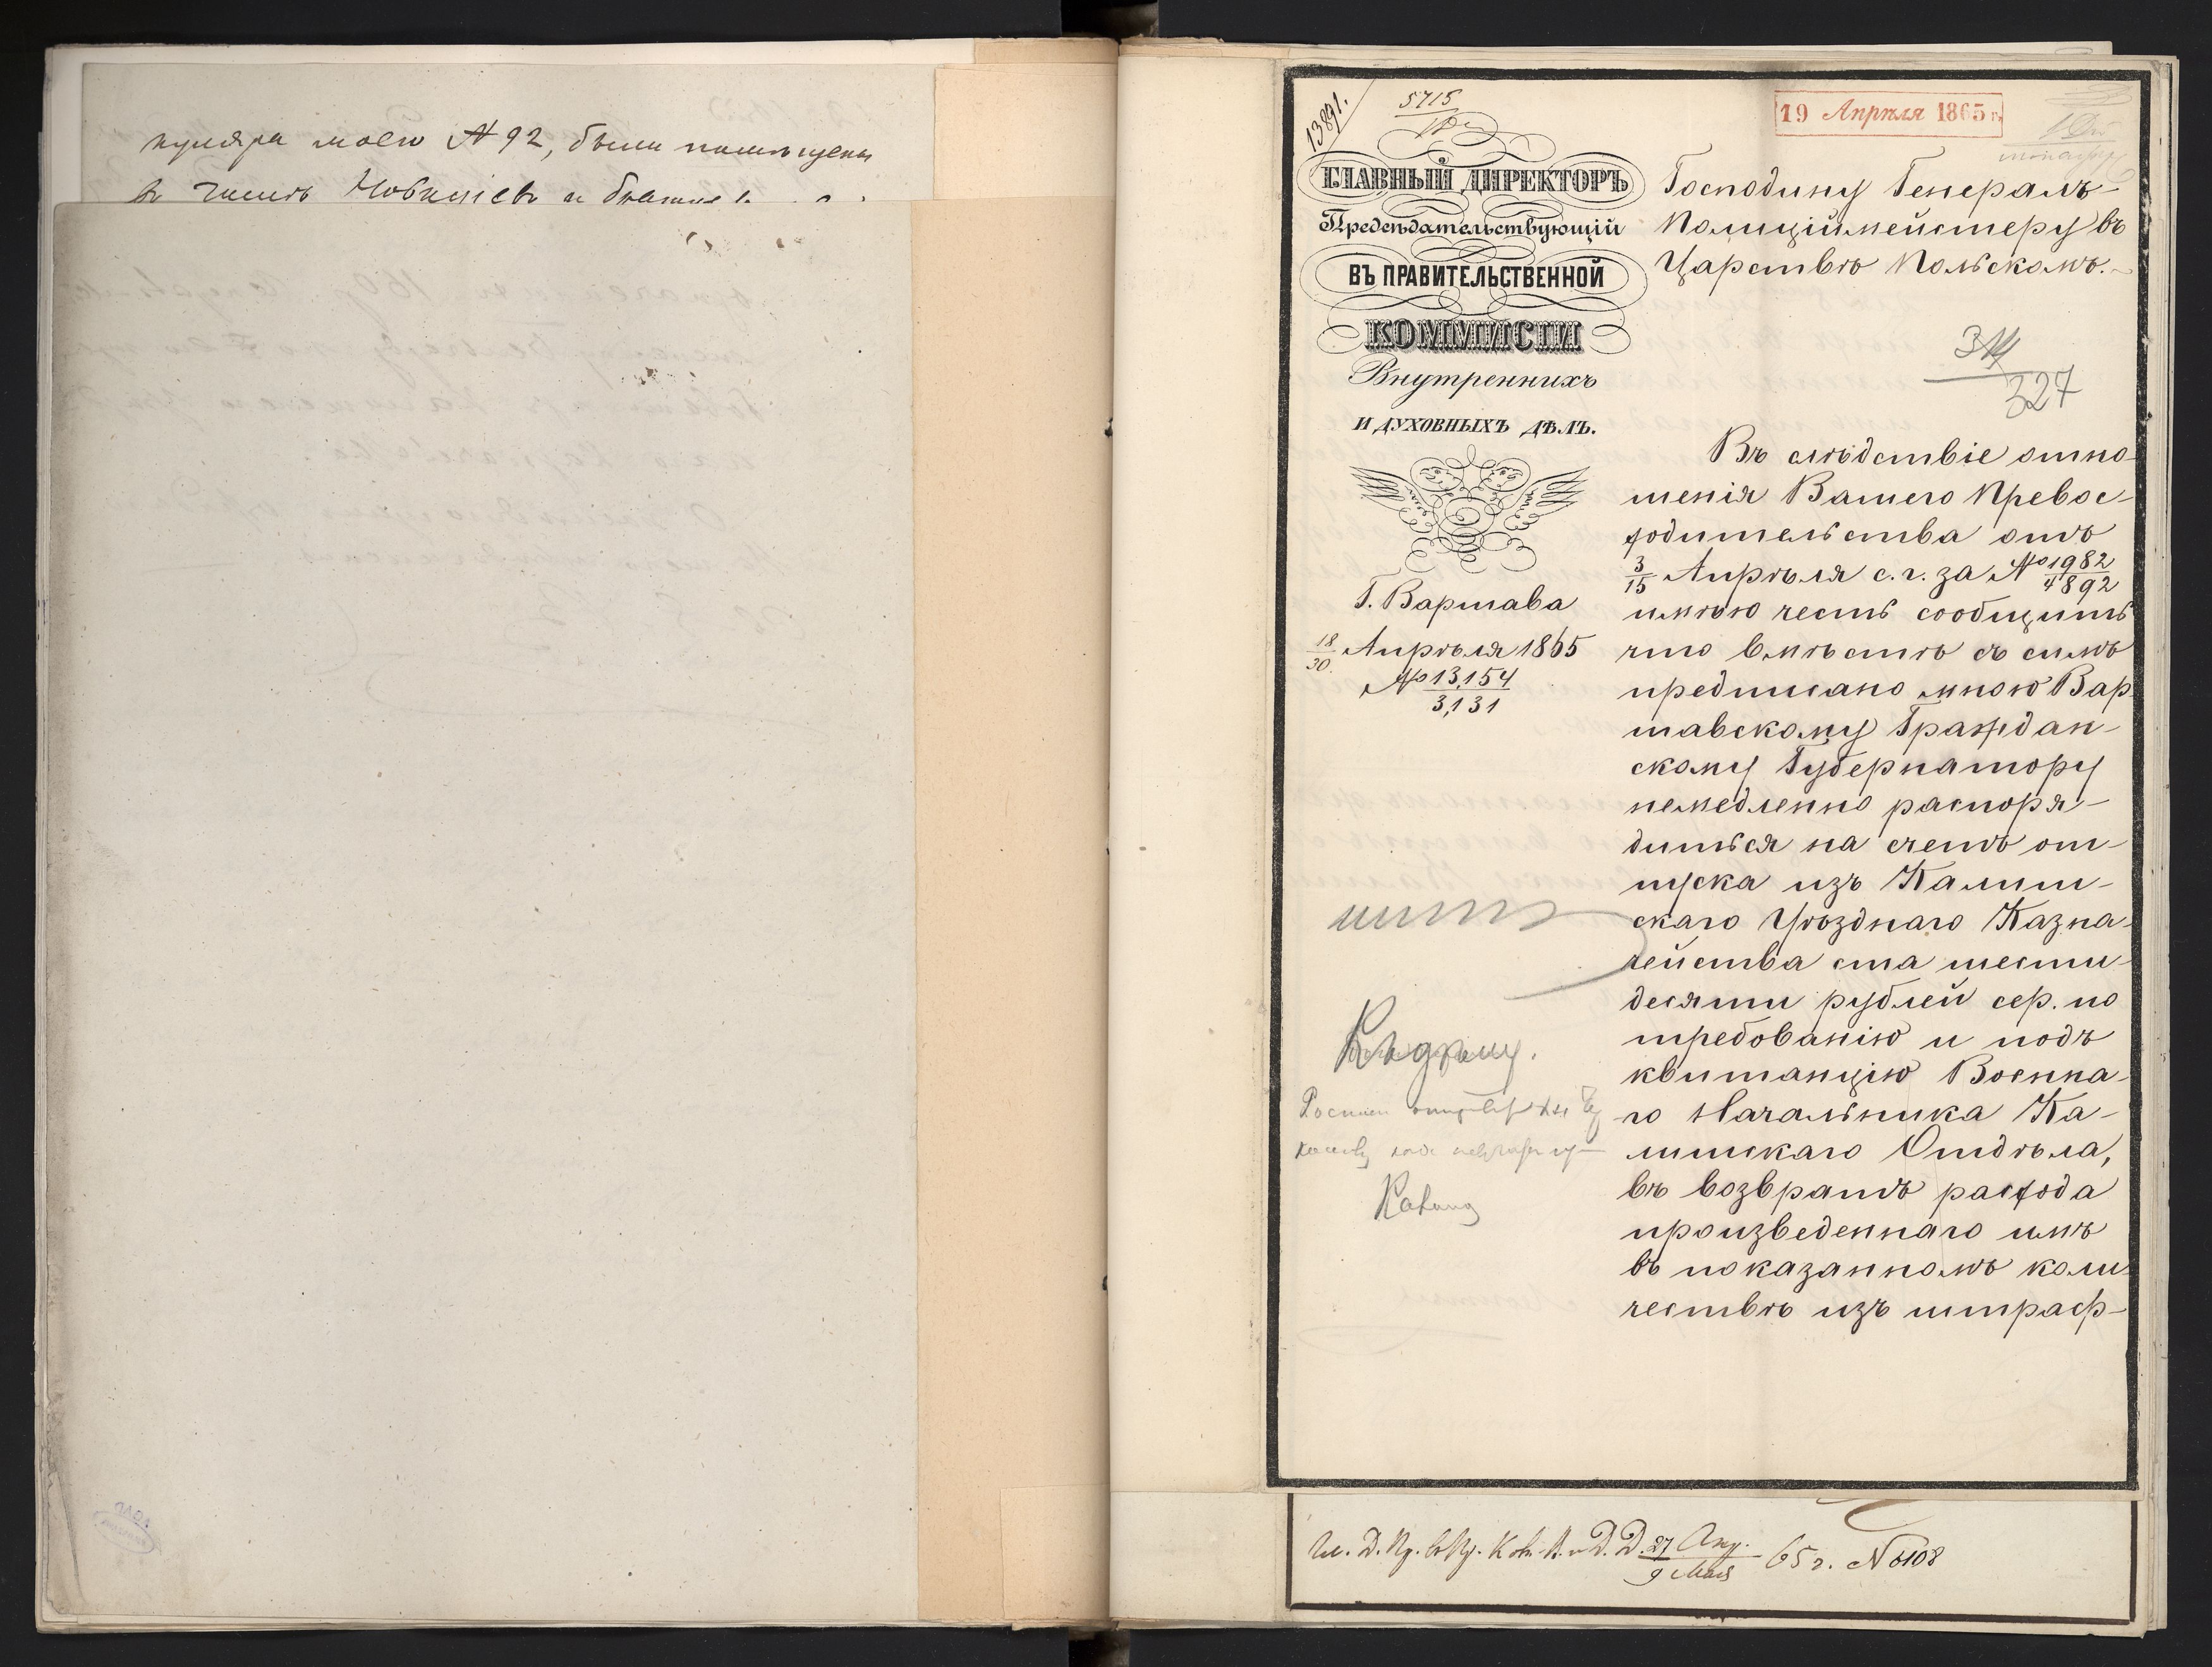 моего № 92, были помещены
въ числѣ
13891.
5715
19 Апрѣля 1865 г.
ГЛАВНЫЙ ДИРЕКТОРЪ
Предсѣдательствующій
ВЪ ПРАВИТЕЛЬСТВЕННОЙ
КОММИСІИ
Внутреннихъ
И ДУХОВНЫХЪ ДѢЛЪ.
Г. Варшава
18/30 Апрѣля 1865
№ 13,154/3,131
Господину Генералъ-
Полиціймейстеру въ
Царствѣ Польскомъ.
327
Въ слѣдствіе отно-
шенія Вашего Превос-
ходительства отъ
3/15 Апрѣля с. г. за № 1982/4892
имѣю честь сообщить
что вмѣстѣ съ симъ
предписано мною Вар-
шавскому Граждан-
скому Губернатору
немедленно распоря-
диться на счетъ от-
пуска изъ Калиш-
скаго Уѣзднаго Казна-
чейства ста шести-
десяти рублей сер. по
требованію и подъ
квитанцію Военна-
го Начальника Ка-
лишскаго Отдѣла,
въ возвратъ расхода
произведеннаго имъ
въ показанномъ коли-
чествѣ изъ штраф-
Къ дѣлу.
Гл. Д. Пр. въ Пр. Ком. В. и Д. Д. 27 Апр./9 Мая 65 г. № 6108